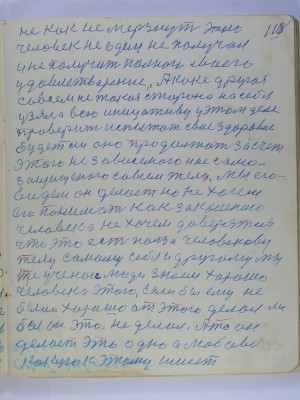 не как не мерзнут этого 118
человек не один не получал
и не получит полного своего
удовлетворение, А я же другая
совсем не такая сторона на себя
узяла всю инициативу у этом деле
проверить испытат свае здоровье
будет ли оно продолжат за счет
этого не зависемого и не само-
защищеного совсем тела, мы его
видем он делает но не хочем
его понимат как закаленого
человека не хочем доверят
что это ест польза человекову
телу самому себе и другому мы
же ученою люди знаем хорошо
человека этого, если бы ему не
было хорошо от этого делал ли
бы он это, не делал. А то он
делает это одно а мы своё
к этому имеет